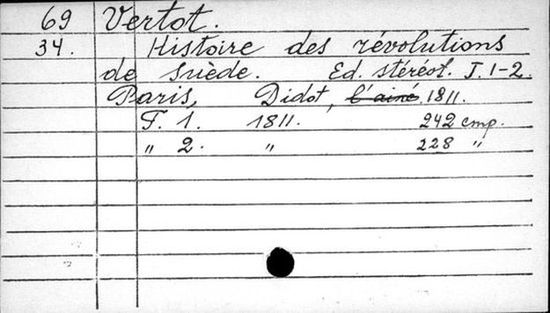 69 Vertot.
34. Histoire des révolutions
de Suède. Ed. stéréot. T. 1-2.
Paris, Didot, l'ainé, 1811.
T. 1. 1811. 242 стр.
" 2. " 228 "